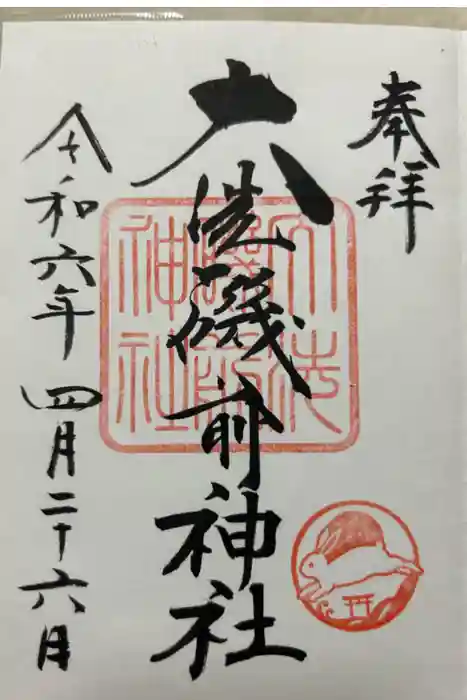 奉拝
大洗磯前神社
令和六年四月二十六日
大洗
磯前
神社